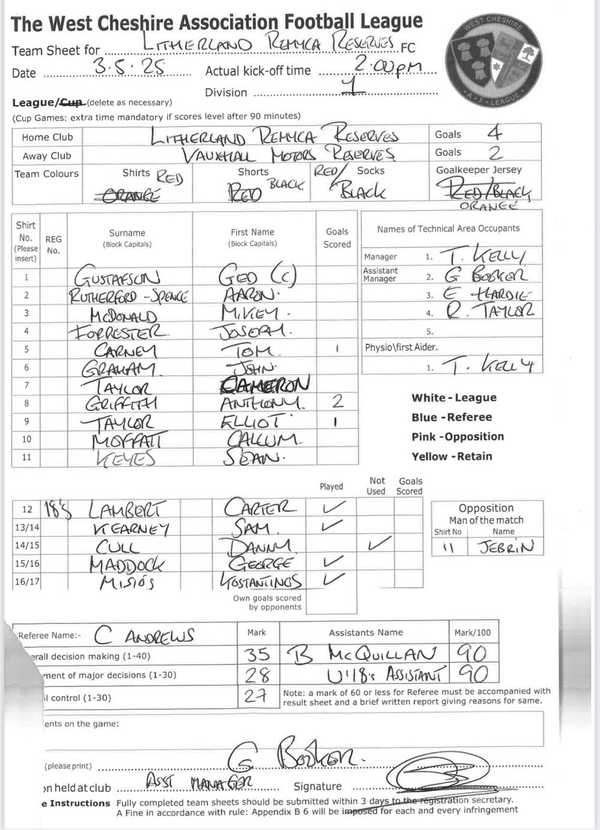 The West Cheshire Association Football League
WEST CHESHIRE A·F LEAGUE
Team Sheet for LITHERLAND REMYCA RESERVES FC
Date 3.5.25 Actual kick-off time 2.00pm
Division 1
League/Cup (delete as necessary)
(Cup Games: extra time mandatory if scores level after 90 minutes)
Home Club LITHERLAND REMYCA RESERVES Goals 4
Away Club VAUXHALL MOTORS RESERVES Goals 2
Team Colours Shirts RED ORANGE Shorts RED BLACK Socks RED/BLACK Goalkeeper Jersey RED/BLACK ORANGE
Shirt No. (Please insert) REG No. Surname (Block Capitals) First Name (Block Capitals) Goals Scored
1 GUSTAFSON GED (C)
2 RUTHERFORD-SPENCE AARON.
3 MCDONALD MIKEY.
4 FORRESTER JOSEPH.
5 CARNEY TOM. 1
6 GRAHAM. JOHN.
7 TAYLOR CAMERON
8 GRIFFITH ANTHONY. 2
9 TAYLOR ELLIOT. 1
10 MOFFATT CALLUM.
11 KEYES SEAN.
Names of Technical Area Occupants
Manager 1. T. KELLY
Assistant Manager 2. G BOOKER
3. E HARDIE
4. R. TAYLOR
5.
Physio\first Aider.
1. T. KELLY
White - League
Blue - Referee
Pink - Opposition
Yellow - Retain
Played Not Used Goals Scored
12 18's LAMBERT CARTER ✓
13/14 KEARNEY SAM. ✓
14/15 CULL DANNY ✓
15/16 MADDOCK GEORGE ✓
16/17 MISIOS KOSTANTINOS ✓
Own goals scored by opponents
Opposition
Man of the match
Shirt No Name
11 JEBRIN
Referee Name:- C ANDREWS Mark Assistants Name Mark/100
erall decision making (1-40) 35 B MCQUILLAN 90
ment of major decisions (1-30) 28 U'18's ASSISTANT 90
l control (1-30) 27 Note: a mark of 60 or less for Referee must be accompanied with
result sheet and a brief written report giving reasons for same.
ents on the game:
(please print) G BOOKER.
on held at club ASST MANAGER Signature
e Instructions Fully completed team sheets should be submitted within 3 days to the registration secretary.
A Fine in accordance with rule: Appendix B 6 will be imposed for each and every infringement